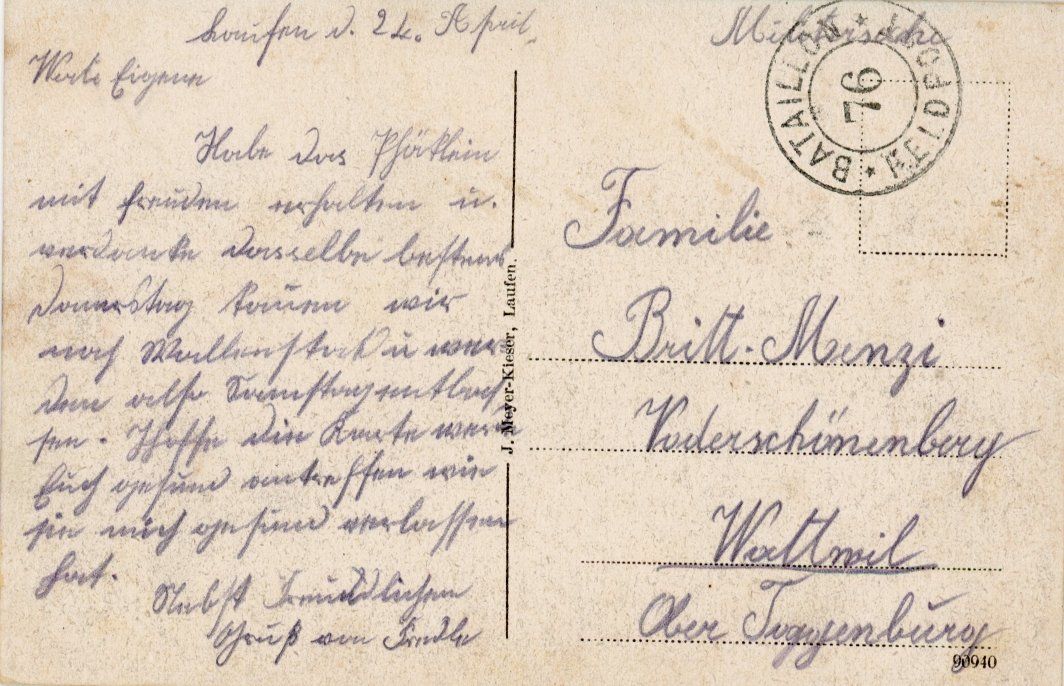 Laufen d. 24. April
Werte Eigene
Habe das Päklein
mit Freuden erhalten u.
verdanke dasselbe bestens
Donnerstag kommen wir
nach Wallenstad u wer
den also Samstag entlas
sen. Hoffe die Karte werde
Euch gesund antreffen wie
sie mich gesund verlassen
hat.
Nebst Freundlichem
Gruß von
J. Meyer-Kieser, Laufen.
BATAILLON 76 FELDPOST
Familie
Britt-Menzi
Voderschömenberg
Wattwil
Ober Toggenburg
90940